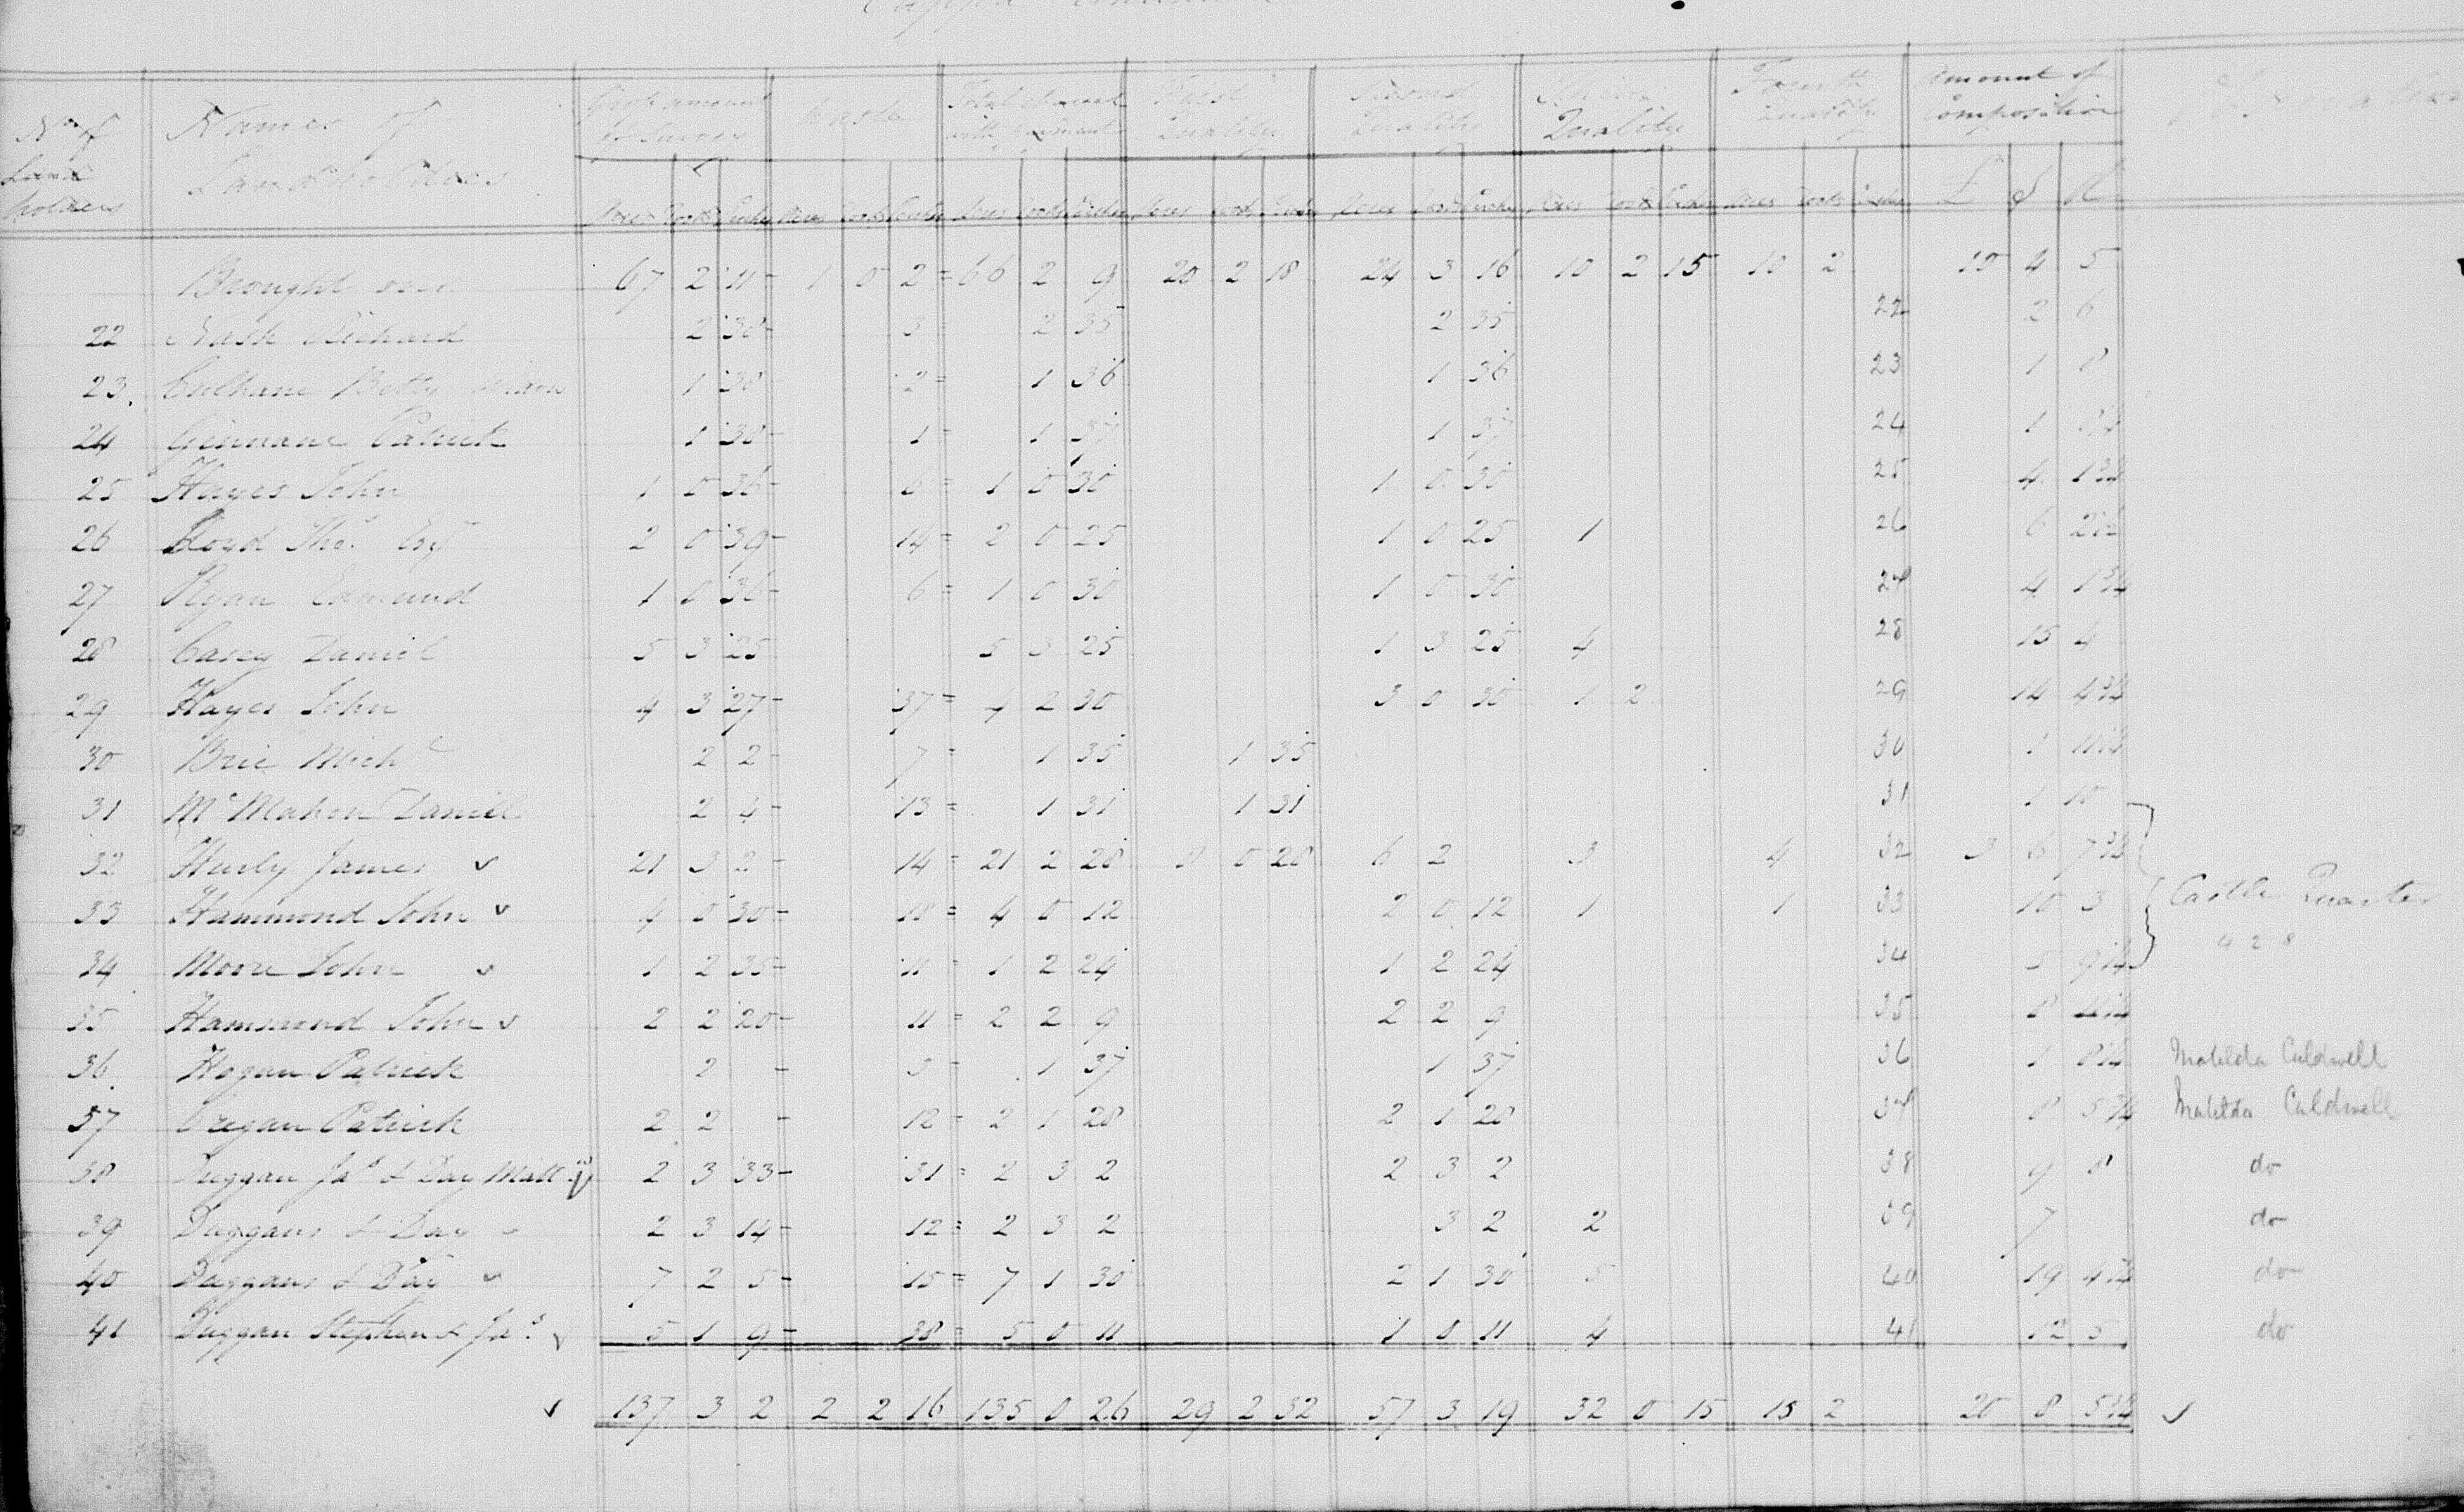 Cappa Continued
No of Land holders | Names of Landholders | Gross amount of Survey | Waste | Total amount with payment | First Quality | Second Quality | Third Quality | Fourth Quality | Amount of Composition
Acres Roods Perches Acres Roods Perches Acres Roods Perches Acres Roods Perches Acres Roods Perches Acres Roods Perches Acres Roods Perches £ S d
Brought over 67 2 11 - 1 0 2 = 66 2 9 20 2 18 24 3 16 10 2 15 10 2 4 5
22 Nash Richard 2 38 - 3 2 35 2 35 22 2 6
23. Culhane Betty 1 38 - 2 = 1 36 1 36 23 1 8
24 Ginnane Patrick 1 38 - 1 = 1 37 1 37 24 1
25 Hayes John 1 0 36 - 6 = 1 0 30 1 0 30 25 4 1 3/4
26 Lloyd Thos. Esq 2 0 39 - 14 = 2 0 25 1 0 25 1 26 6
27 Ryan Edmund 1 0 36 - 6 = 1 0 30 1 0 30 27 4 1 3/4
28 Casey Daniel 5 3 25 5 3 25 1 3 25 4 28 15 4
29 Hayes John 4 3 27 - 37 = 4 2 30 3 0 30 1 2 29 14 4 3/4
30 Brie Michl 2 2 - 7 = 1 35 1 35 30 1
31 McMahon Daniel 2 4 - 13 = 1 31 1 31 31 1 10
32 Hurly James v 21 3 2 - 14 = 21 2 28 0 28 6 2 3 4 32 3 6 7
33 Hammond John v 4 0 30 - 18 = 4 0 12 2 0 12 1 1 33 10 3 Castle Quarter
34 Moore John v 1 2 35 - 11 = 1 2 24 1 2 24 34 5 9 4 2 8
35 Hammond John v 2 2 20 - 11 = 2 2 9 2 2 9 35 8
36 Hogan Patrick 2 - 3 = 1 37 1 37 36 1 Matilda Culdwell
37 Cregan Patrick 2 2 - 12 = 2 1 28 2 1 28 37 8 5 Matilda Culdwell
38 Duggan Jas & Day Matt v 2 3 33 - 31 = 2 3 2 2 3 2 38 9 8 do
39 Duggans & Day v 2 3 14 - 12 = 2 3 2 3 2 2 39 7 do
40 Duggans & Day v 7 2 5 - 15 = 7 1 30 2 1 30 5 40 19 4 do
41 Duggan Stephen & Jas. v 5 1 9 - 38 = 5 0 11 1 0 11 4 41 12 5 do
v 137 3 2 2 2 16 135 0 26 29 2 32 57 3 19 32 0 15 15 2 20 8 5 v